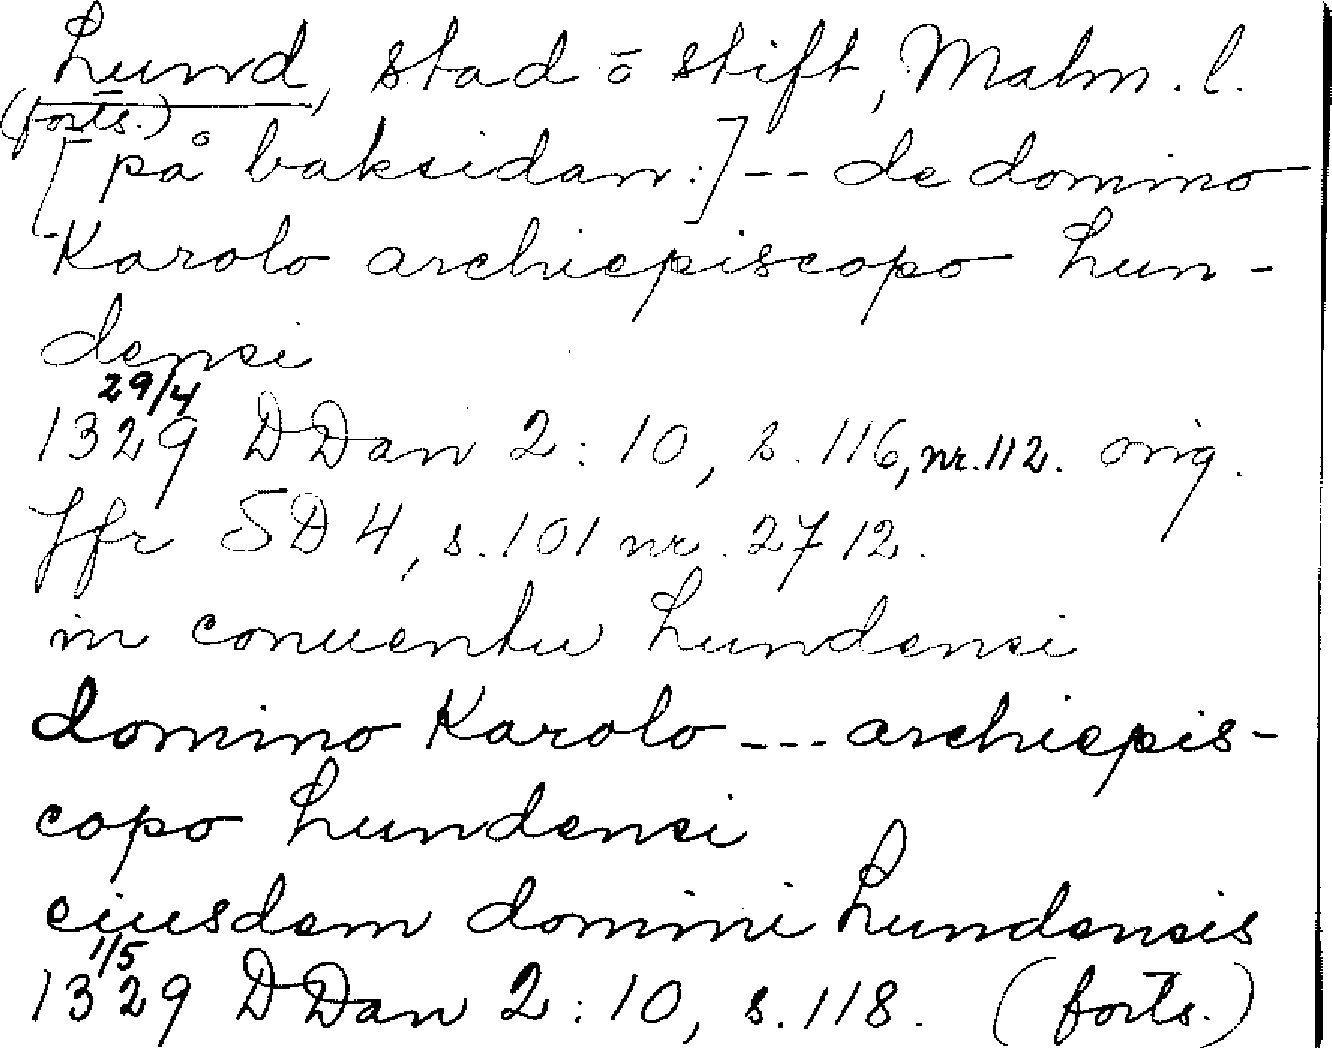 Lund, stad ō stift, Malm. l.
(forts.)
[på baksidan:] -- de domino
Karolo archiepiscopo Lun-
densi
29/4
1329 DDan 2:10, s.116, nr.112. orig.
Jfr SD 4, s.101 nr. 2712.
in conuentu Lundensi
domino Karolo --- archiepis-
copo Lundensi
eiusdem domini Lundensis
1/5
1329 DDan 2:10, s.118. (forts.)